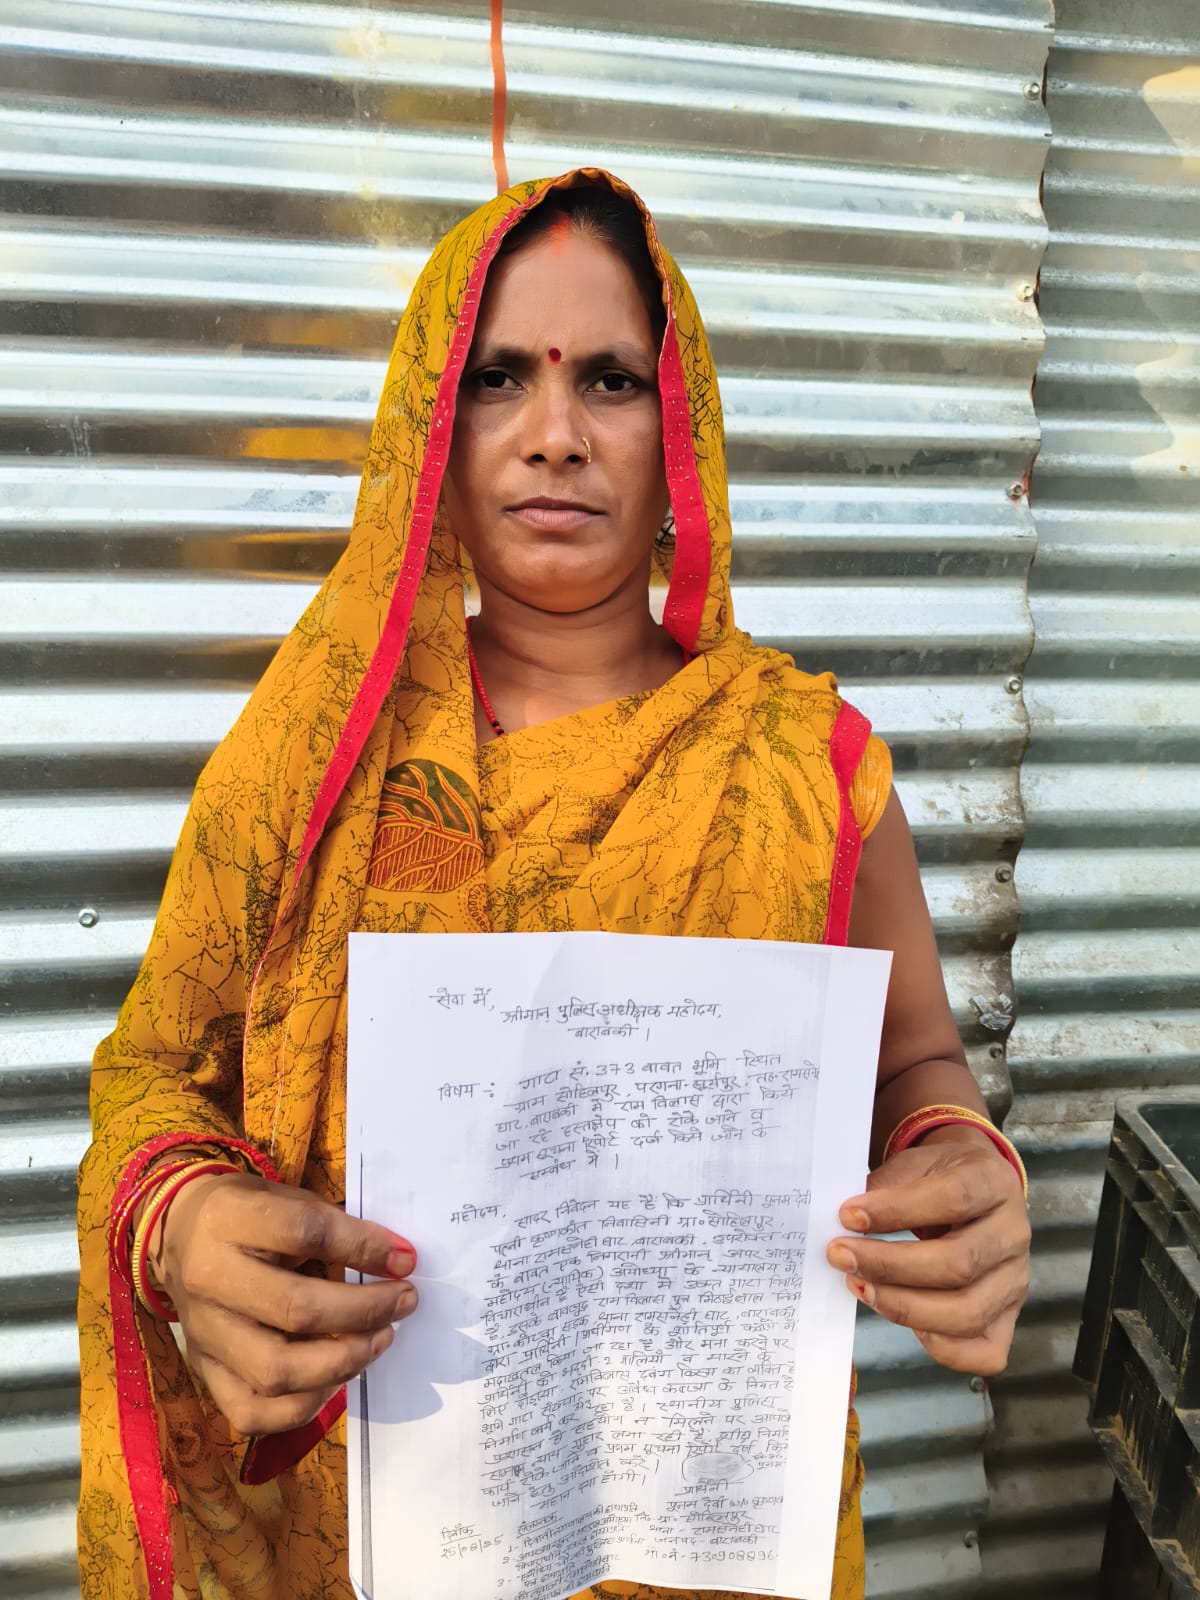 सेवा में,
श्रीमान् पुलिस अधीक्षक महोदय,
बाराबंकी।
विषय :- गाटा सं. 373 बावत भूमि स्थित
ग्राम सोहिलपुर, परगना-सूर्यपुर, तह-रामसनेही
घाट, बाराबंकी में राम विलास द्वारा किये
जा रहे हस्तक्षेप को रोके जाने व
प्रथम सूचना रिपोर्ट दर्ज किये जाने के
सम्बंध में।
महोदय, सादर निवेदन यह है कि प्रार्थिनी पूनम देवी
पत्नी कृष्णकांत निवासिनी ग्रा० सोहिलपुर,
थाना रामसनेही घाट, बाराबंकी. उपरोक्त वाद
के बावत एक निगरानी श्रीमान् अपर आयुक्त
महोदय (न्यायिक) अयोध्या के न्यायालय में
विचाराधीन है ऐसी दशा में उक्त गाटा विवादि
है इसके बावजूद राम विलास पुत्र मिठाईलाल
ग्रा०-कोटवा सड़क थाना रामसनेही घाट, बाराबंकी
द्वारा प्रार्थिनी / प्रार्थीगण के शांतिपूर्ण कब्जे में
किया जा रहा है और मना करने पर
प्रार्थिनी को भद्दी २ गालियाँ व मारने के
लिए दौड़ाया. रामविलास दबंग किस्म का व्यक्ति है
भूमि गाटा संख्या पर अवैध कब्जा के नियत से
निर्माण कार्य कर रहा है। स्थानीय पुलिस
प्रशासन से सहयोग न मिलने पर आपके
न्याय गुहार लगा रही है. शीघ्र निर्मा
कार्य रोके जाने व प्रथम सूचना रिपोर्ट दर्ज किये
जाने हेतु आदेशित करें।
महान दया होगी।
प्रार्थिनी
पूनम देवी w/o कृष्णकां
ग्रा०- सोहिलपुर
थाना - रामसनेही घाट
जनपद - बाराबंकी
मो० नं- 730908896
दिनांक
25/08/25
संलग्नक